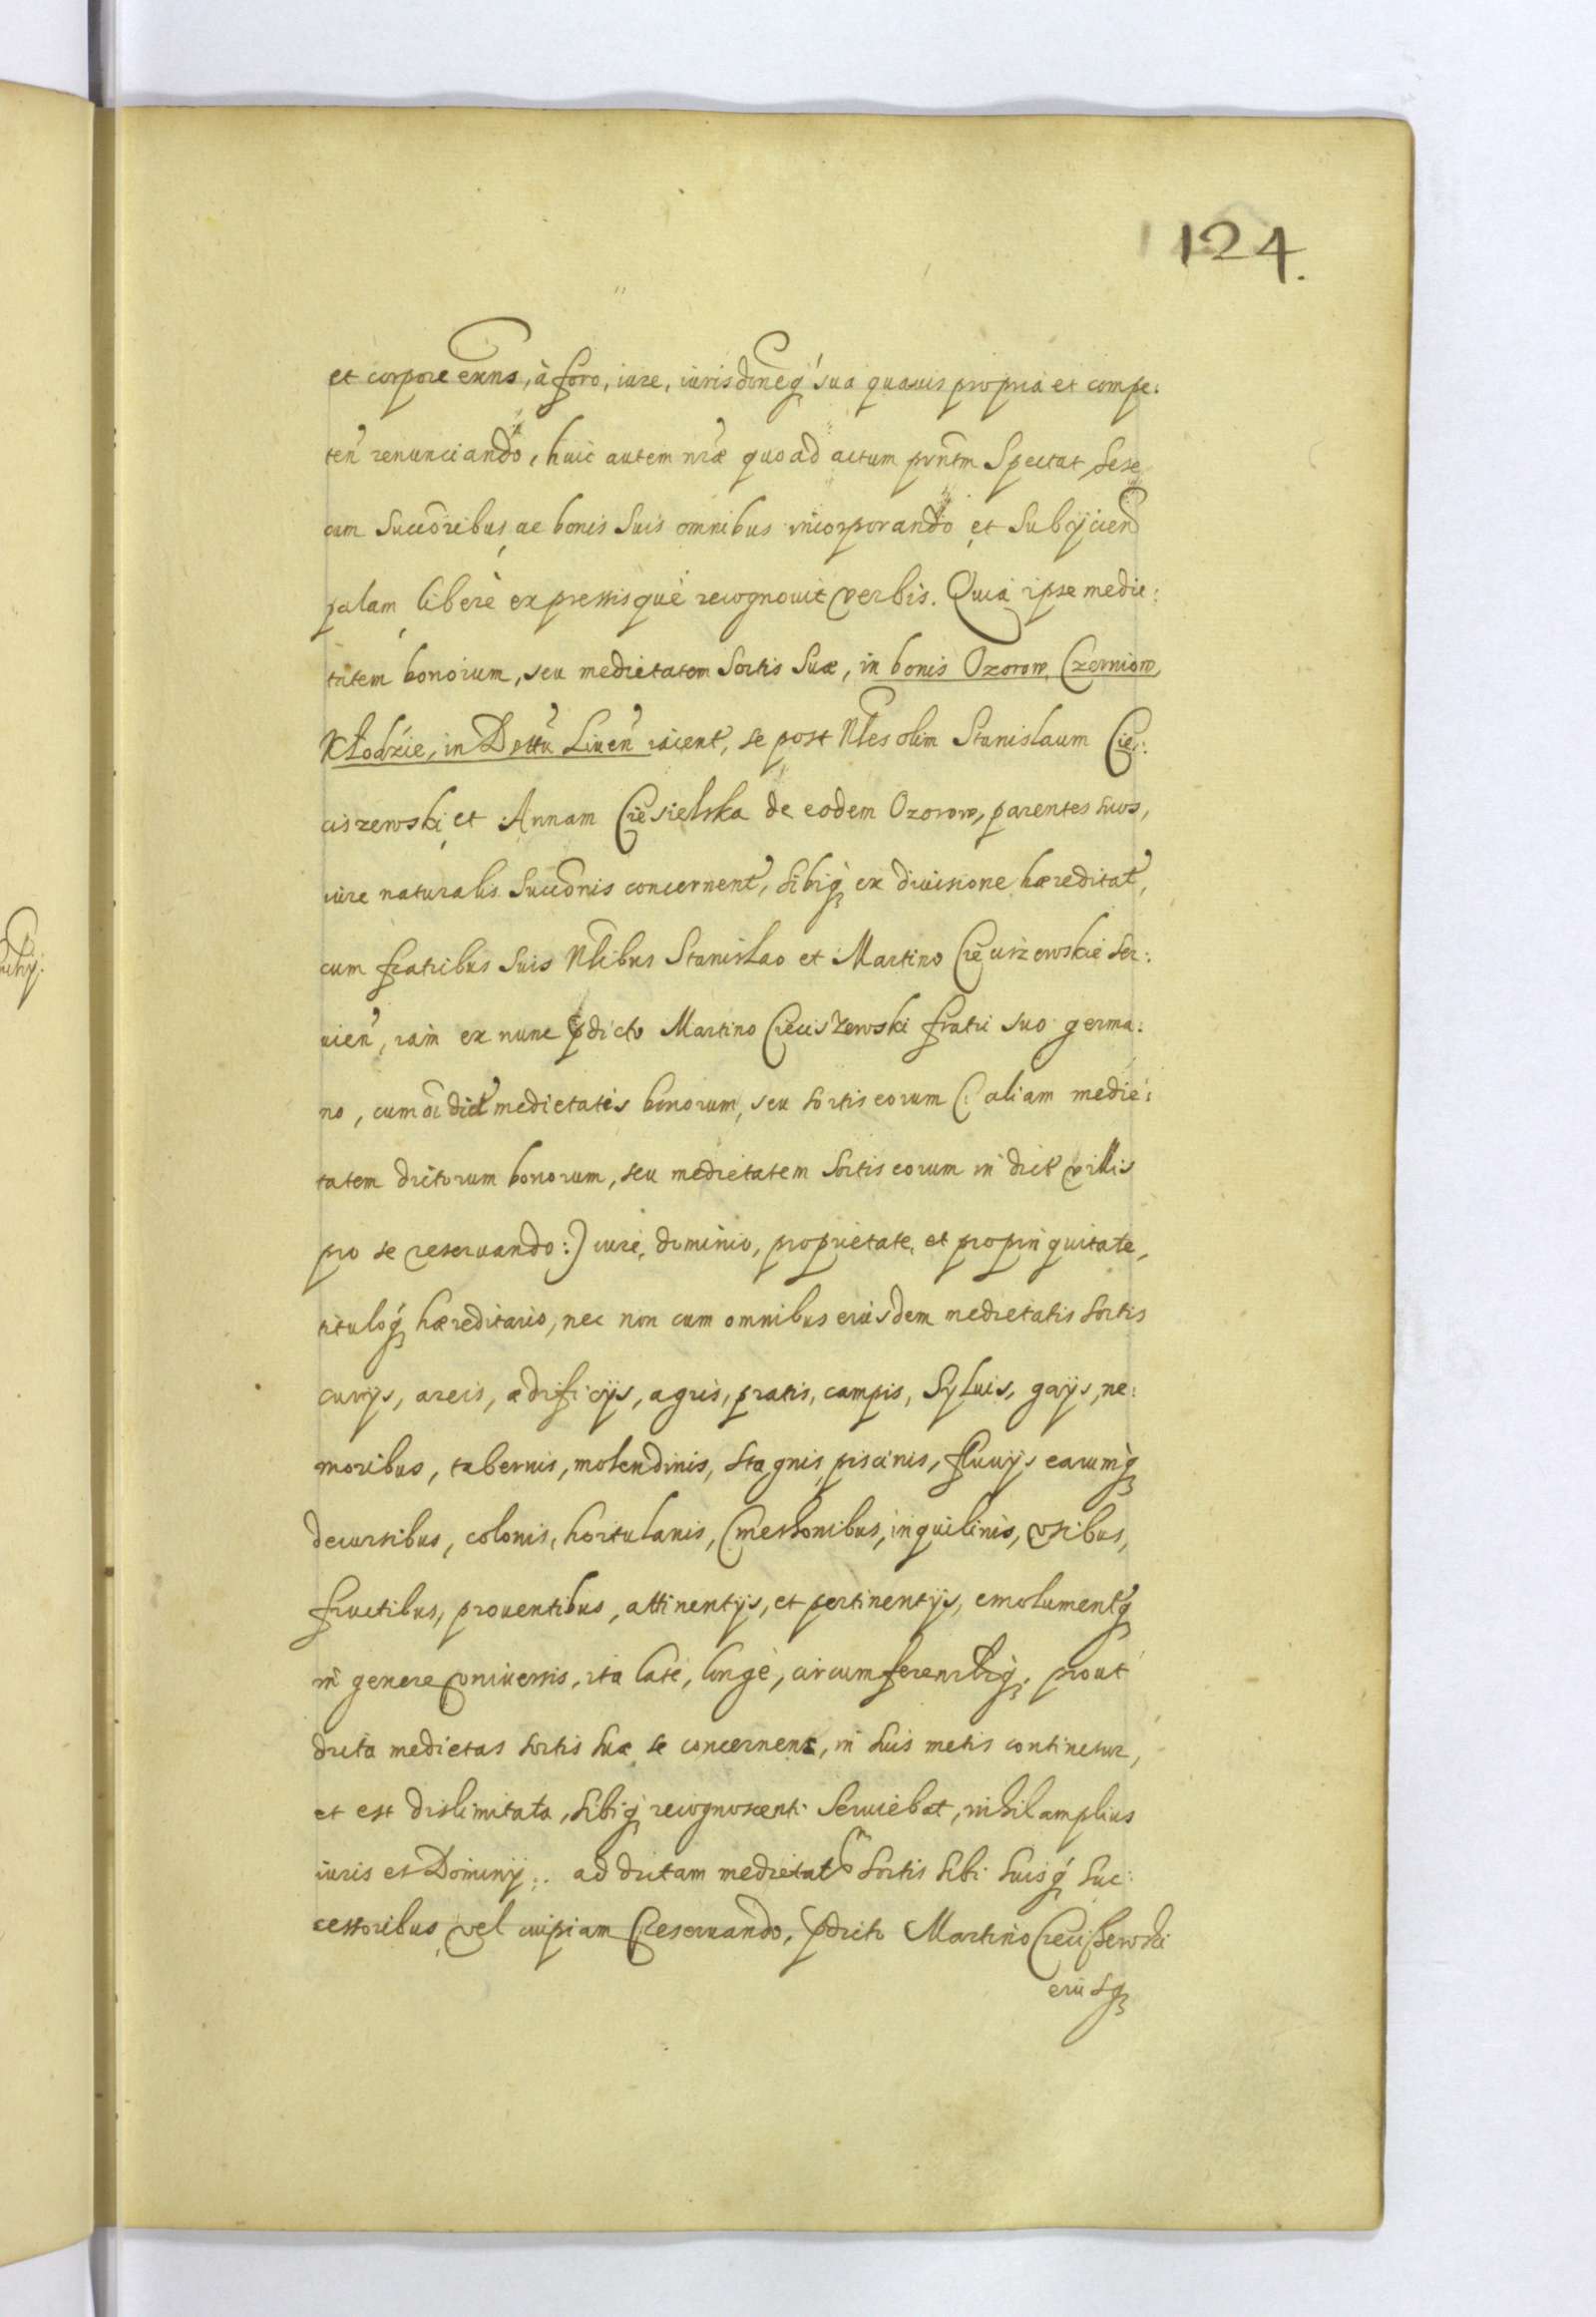 124.
et corpore exñs, à foro, iure, iurisdõneq́ sua quauis propria et compe:
teñ renunciando, huic autem nr̃æ quo ad actum pñtm Spectat sese
cum Succõribus ac bonis Suis omnibus incorporando et Subyciend
palam liberè expressisquè recognouit verbis. Quia ipse medie:
tatem bonorum, seu medietatem Sortis Suæ, in bonis Ozorow, Czerniow,
Kłodzie, in Dsttũ Liueñ iacent, se post Nles olim Stanislaum Cie:
ciszewski et Annam Ciesielska de eodem Ozorow, parentes suos,
iure naturalis Succõnis concernent, Sibiq́ ex diuisione hæreditat,
cum fratribus Suis Nlibus Stanislao et Martino Cieciszewskie ser:
uień, iam ex nunc pdicto Martino Cieciszewski fratri suo germa:
no, cum oĩ dict medietatis bonorum, seu sortis eorum (: aliam medie:
tatem dictorum bonorum, seu medietatem Sortis eorum in dict villis
pro se reseruando :) iure, dominio, proprietate, et propinquitate,
tituloq́ hæreditario, nec non cum omnibus eiusdem medietatis sortis
curijs, areis, ædificijs, agris, pratis, campis, Syluis, gaijs, ne:
moribus, tabernis, molendinis, stagnis, piscinis, fluuijs earumq́
decursibus, colonis, hortulanis, Cmethonibus, inquilinis, vsibus,
fructibus, prouentibus, attinentijs, et pertinentijs, emolumentq́
in genere vniuersis, ita latè, longè, circumferentq́, prout
dicta medietas sortis suæ se concernens, in suis metis continetur,
et est dislimitata, Sibiq́ recognoscenti Seruiebat, nihil amplius
iuris et Dominij :. ad dictam medietatem sortis sibi suisq́ suc:
cessoribus vel cuipiam reseruando, pdicto Martino Ciecissewski
eiusq́